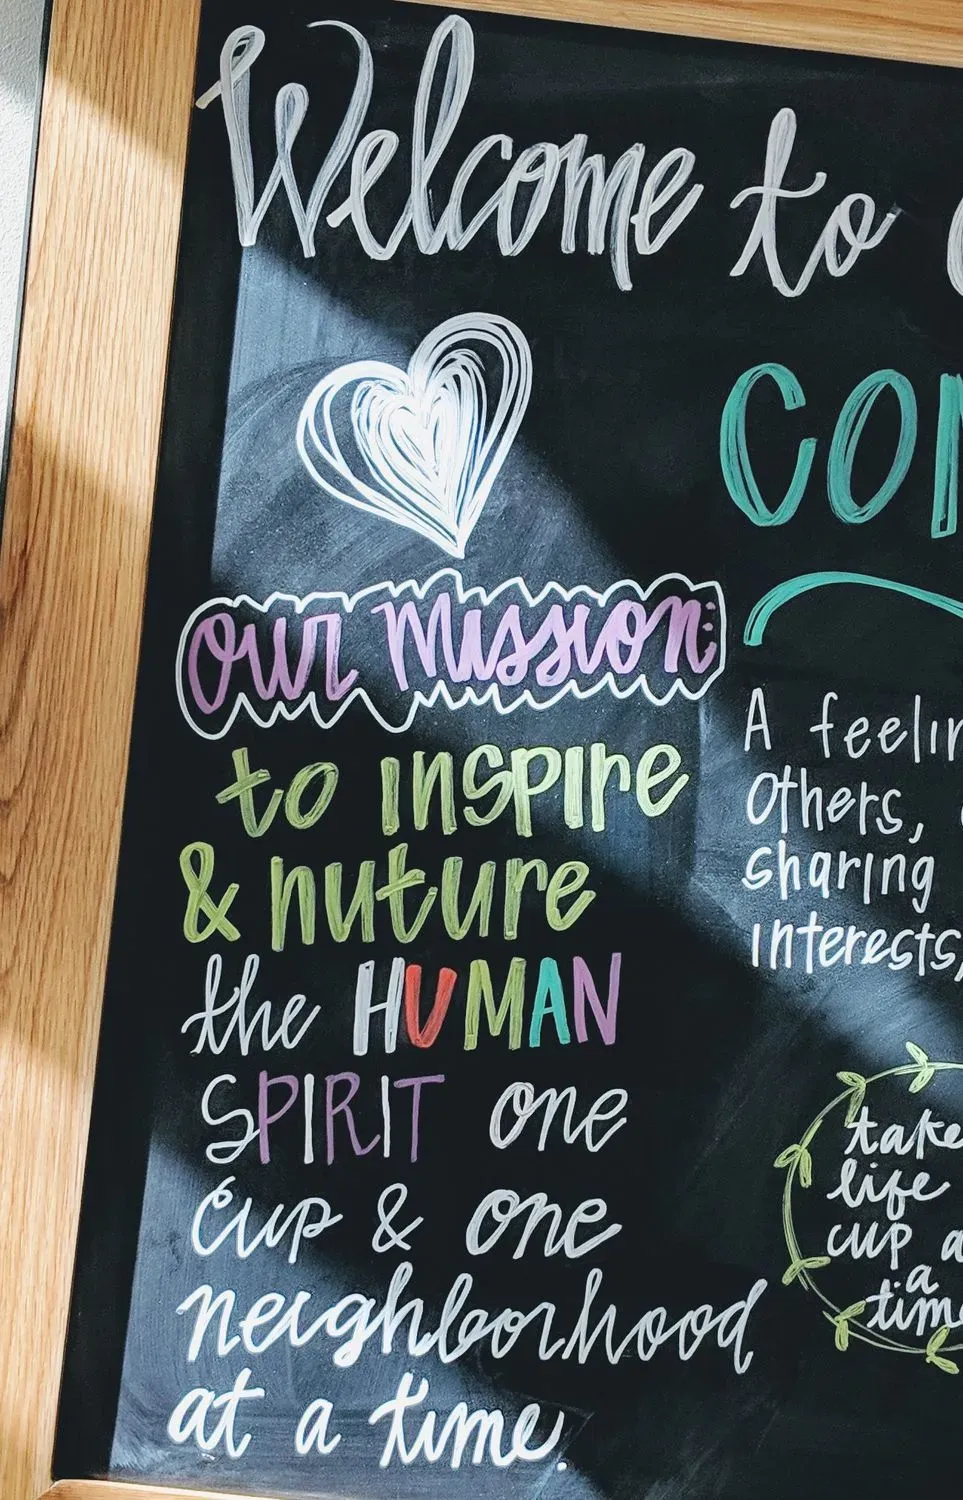 Welcome to
our mission:
to inspire
& nuture
the HUMAN
SPIRIT one
cup & one
neighborhood
at a time.
COM
A feelin
others,
sharing
interests,
take
life
cup a
a
time